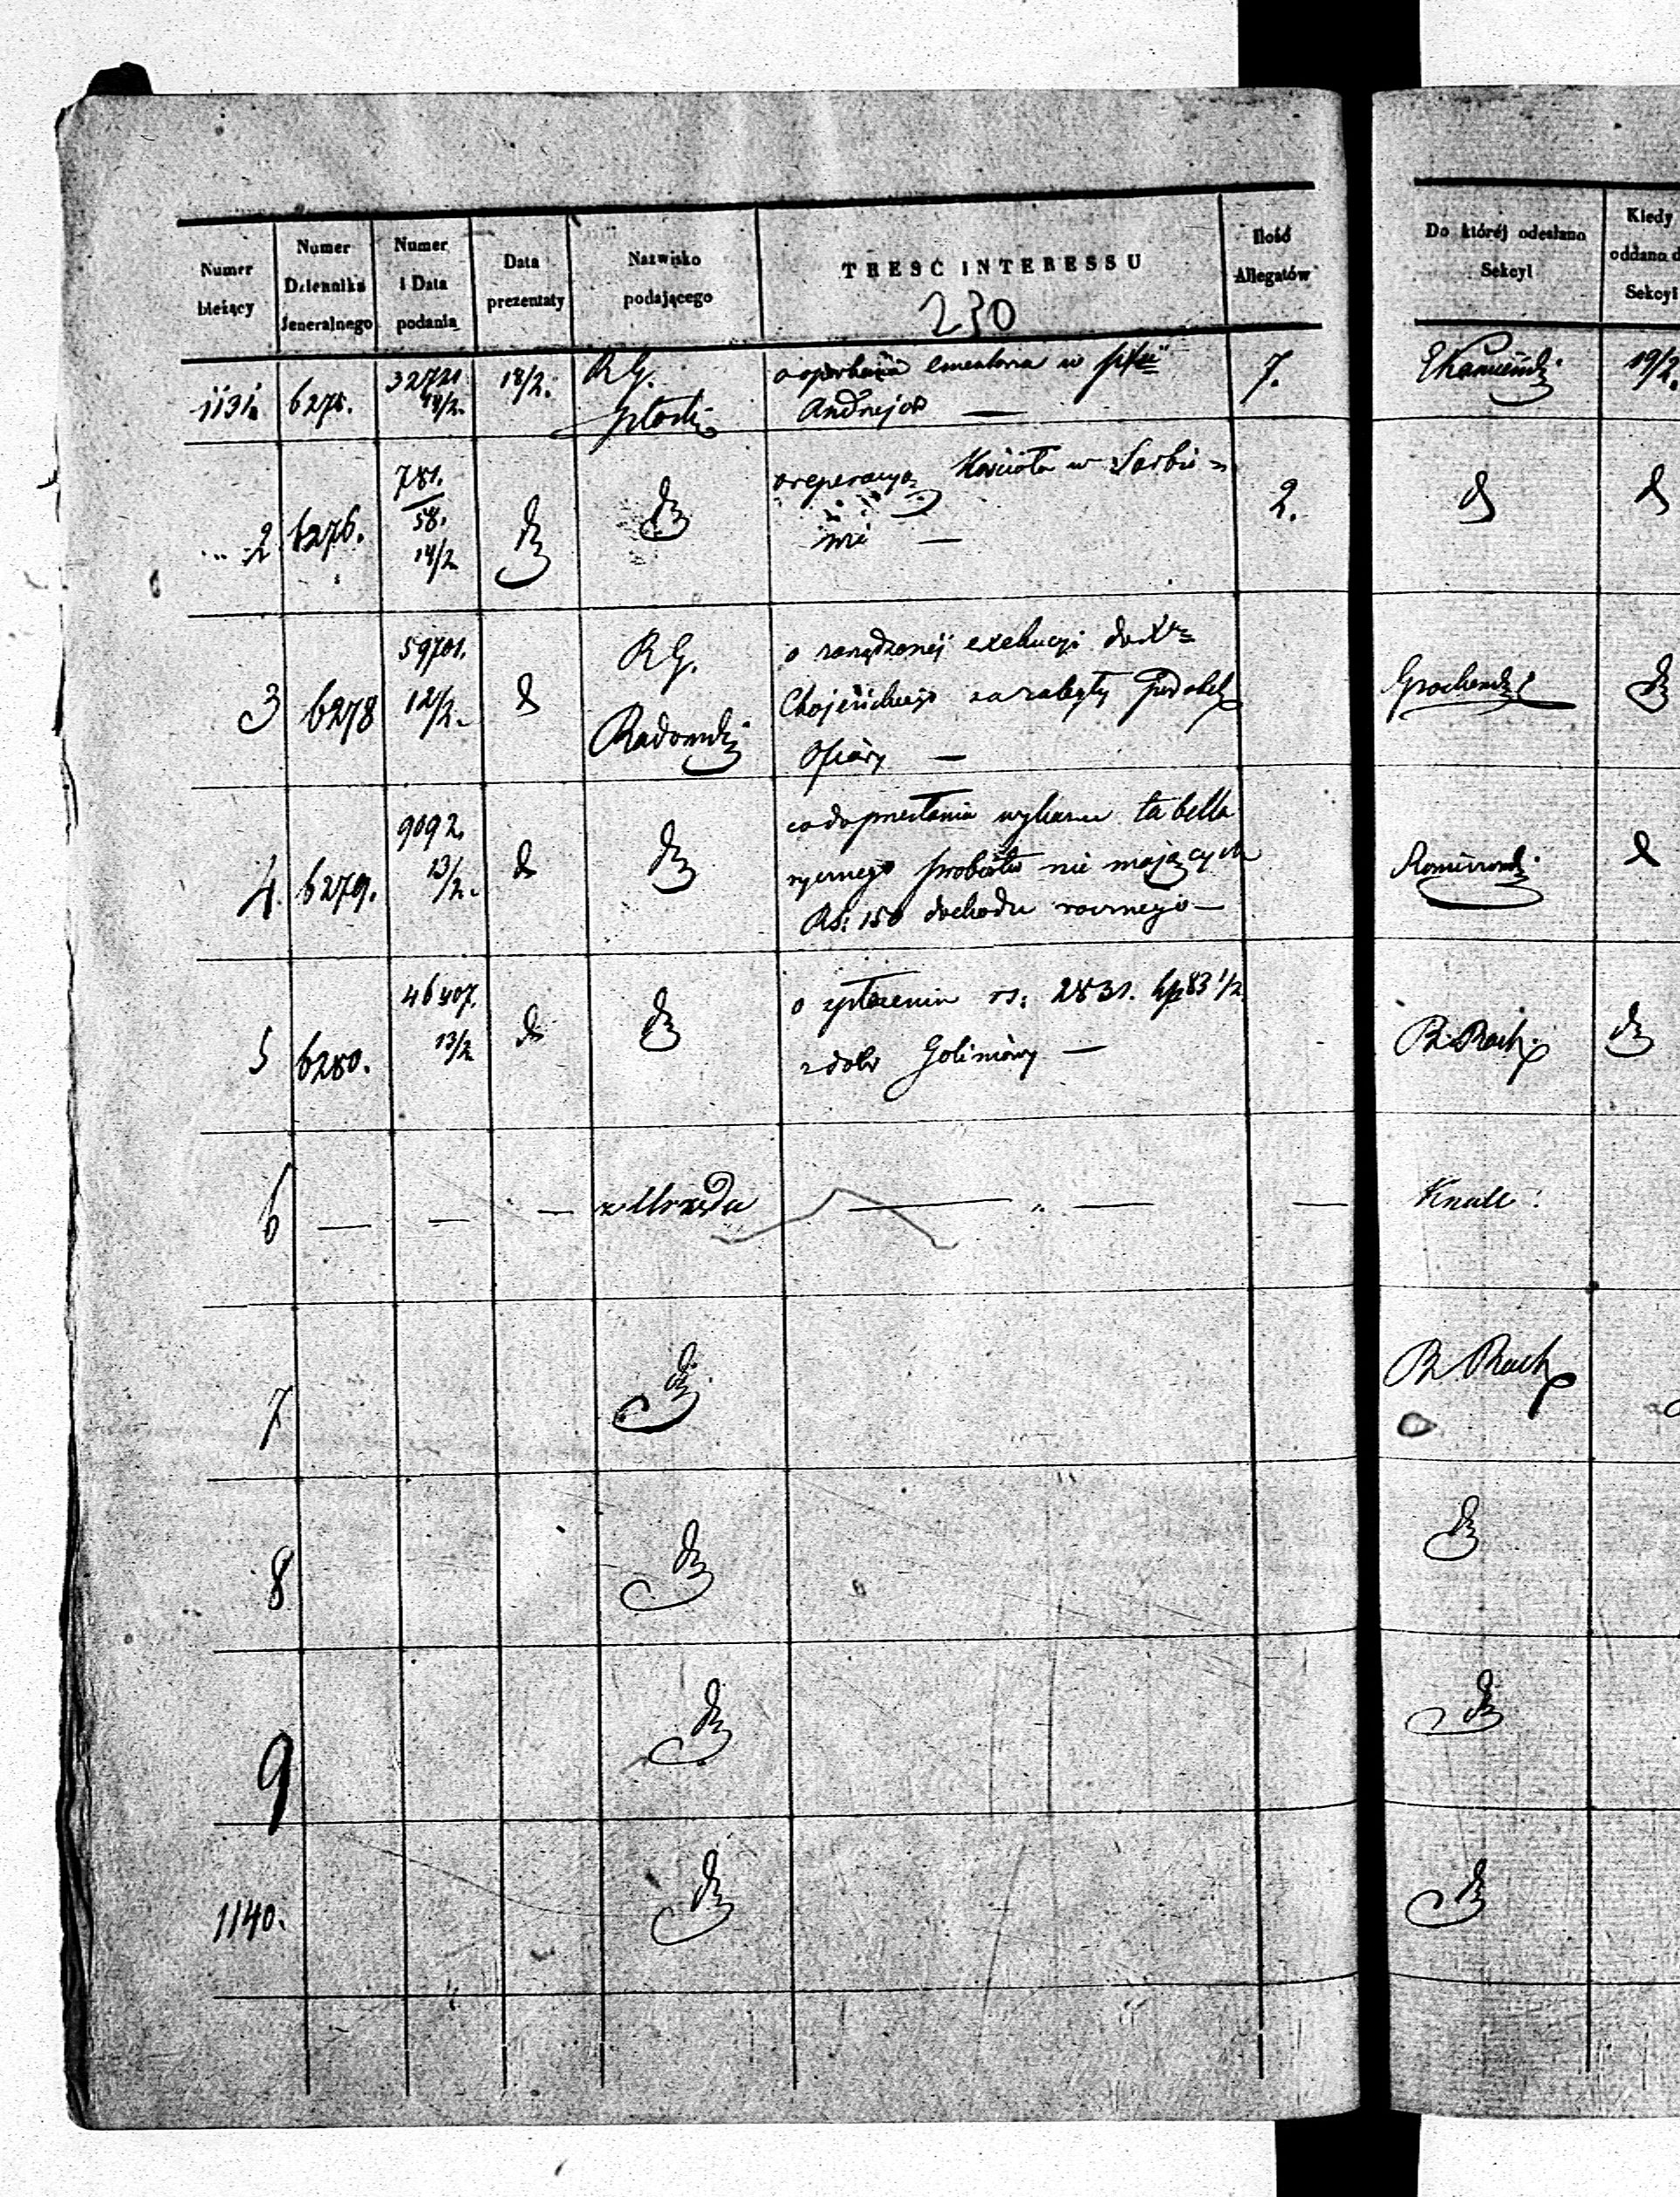 Numer bieżący
Numer Dziennika Jeneralnego
Numer i Data podania
Data prezentaty
Nazwisko podającego
TRESĆ INTERESSU
230
Ilość Allegatów
Do któréj odesłano Sekcyi
Kiedy oddano d
Sekcyi
1131. 6275. 32721 14/2. 18/2. R G. Płocki
w
Andrzejów —
7. 19/2.
2 6276. 781. 58. 14/2 d
o reperacyą Kościoła w Sarbie=
wie —
2. d d
3 6278 59701. 12/2. d R G. Radomski
o zarządzonéj exekucyi do X
Chojeńskiego za zaległy podatek
Ofiary —
4. 6279. 9092. 13/2. d d
co do przesłania wykazu tabella
rycznego probostw nie mających
Rs: 150 dochodu rocznego —
d
5 6280. 46407. 13/2 d d
o rs: 2831. kp 83 1/2
z dóbr —
d
6 — — — z Urzędu — " — — Knall:
7 d
8 d d
9 d d
1140. d d